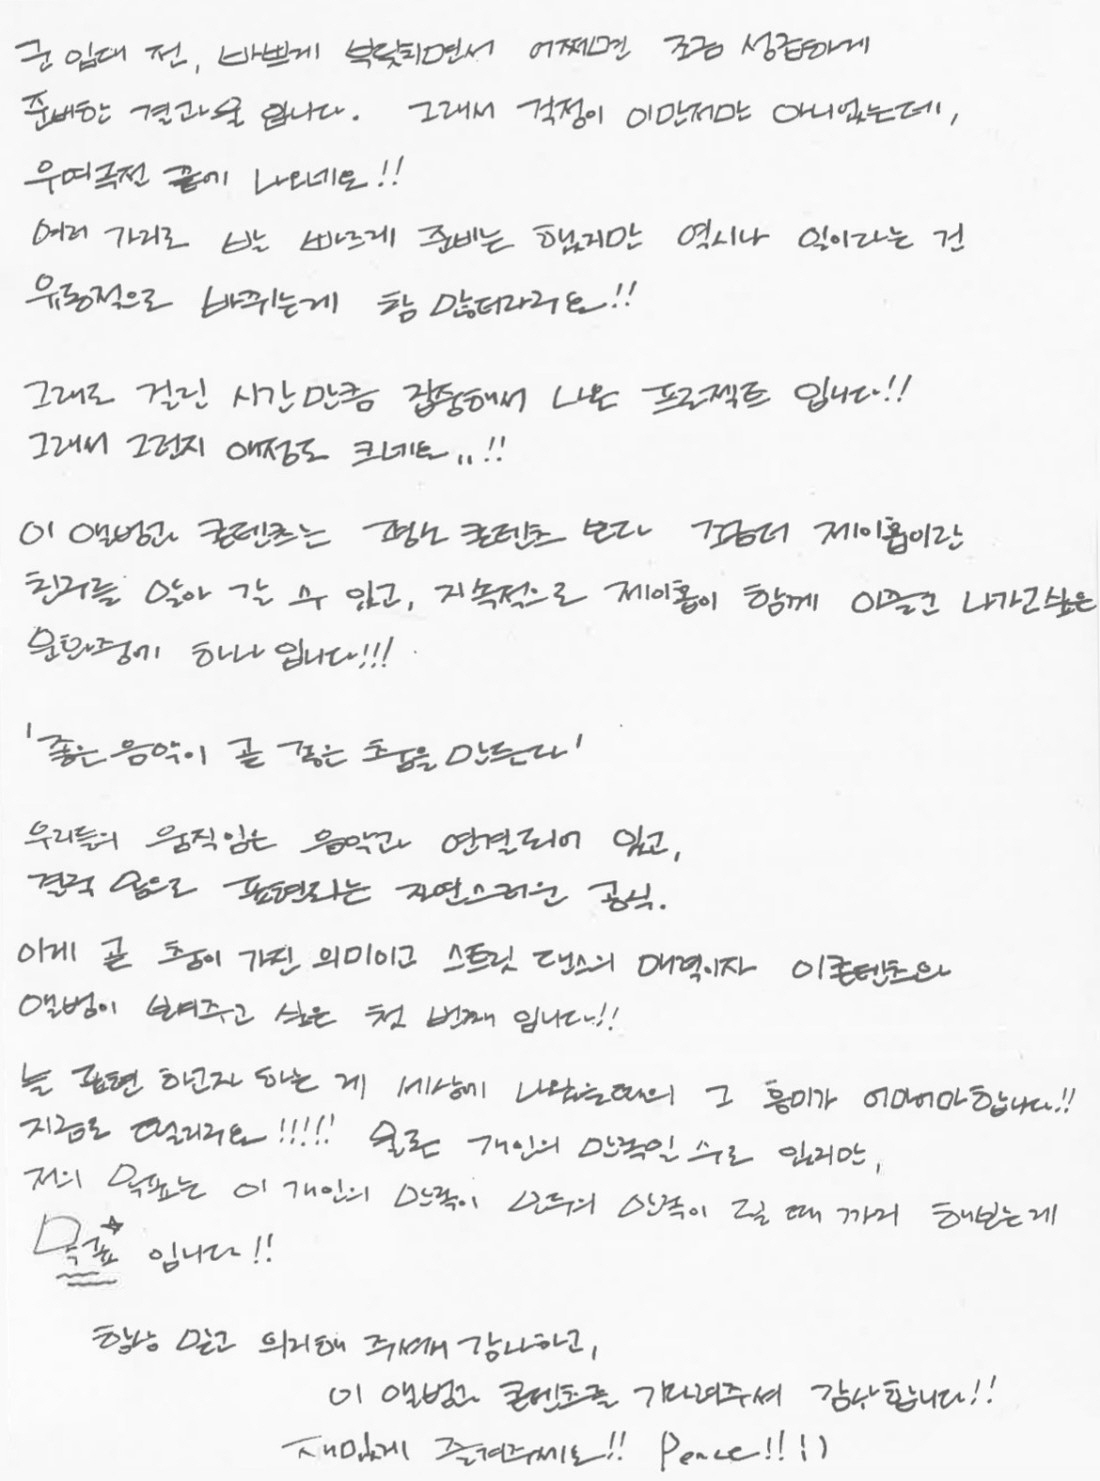 군 입대 전, 바쁘게 부딪히면서 어쩌면 조금 성급하게
준비한 결과물 입니다. 그래서 걱정이 이만저만 아니었는데,
우여곡절 끝에 나오네요!!
여러 가지로 발 빠르게 준비는 했지만 역시나 일이라는 건
유동적으로 바뀌는게 참 많더라구요!!
그래도 걸린 시간만큼 집중해서 나온 프로젝트 입니다!!
그래서 그런지 애정도 크네요..!!
이 앨범과 콘텐츠는 평소 콘텐츠 보다 조금더 제이홉이란
친구를 알아 갈 수 있고, 지속적으로 제이홉이 함께 이끌고 나가고싶은
문화중에 하나 입니다!!!
'좋은 음악이 곧 좋은 춤을 만든다'
우리들의 움직임은 음악과 연결되어 있고,
결국 춤으로 표현되는 자연스러운 공식.
이게 곧 춤이 가진 의미이고 스트릿 댄스의 매력이자 이콘텐츠와
앨범이 보여주고 싶은 첫 번째 입니다!!
늘 표현 하고자 하는 게 세상에 나왔을때의 그 흥미가 어마어마합니다!!
지금도 떨리구요!!!!! 물론 개인의 만족일 수도 있지만,
저의 목표는 이 개인의 만족이 모두의 만족이 될 때 까지 해보는게
목표 입니다!!
항상 믿고 의지해 주셔서 감사하고,
이 앨범과 콘텐츠를 기다려주셔 감사합니다!!
재밌게 즐겨주세요!! Peace!! :)